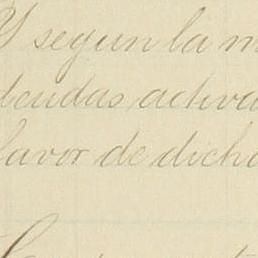 Y segun la m
deudas activa
favor de dich